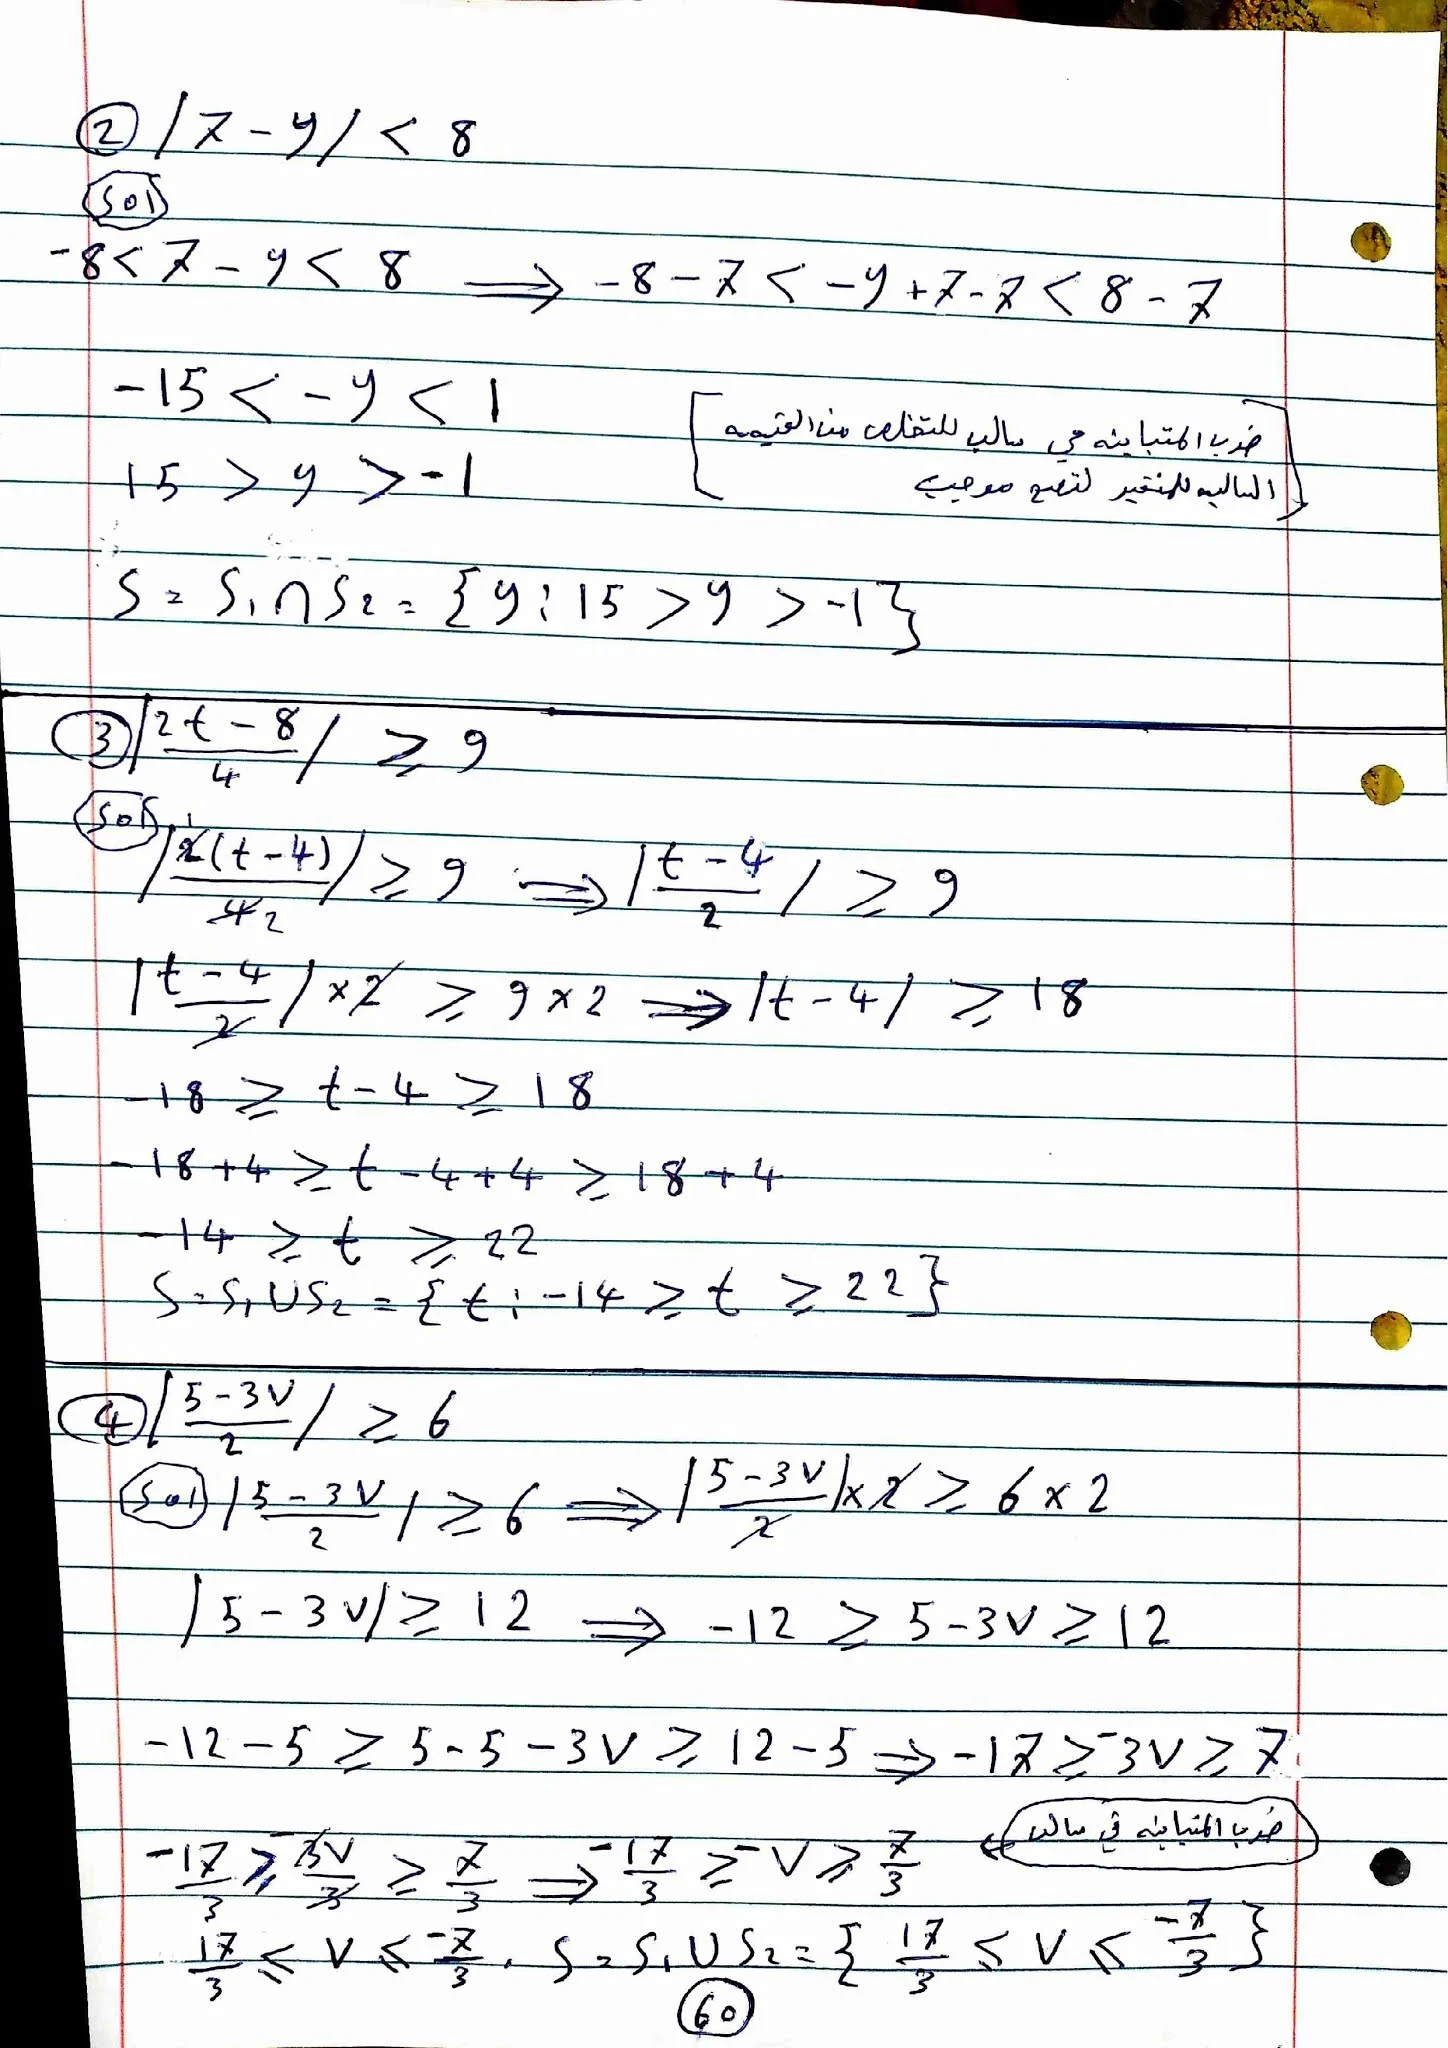 ② |7 - y| < 8
sol
-8 < 7 - y < 8 ⟹ -8 - 7 < -y + 7 - 7 < 8 - 7
-15 < -y < 1
[ضرب المتباينه في سالب للتخلص من القيمه
السالبه للمتغير لتصبح موجب]
15 > y > -1
S = S₁ ∩ S₂ = {y : 15 > y > -1}
③ |(2t - 8)/4| ≥ 9
sol
|2(t - 4)/4| ≥ 9 ⟹ |(t - 4)/2| ≥ 9
|(t - 4)/2| × 2 ≥ 9 × 2 ⟹ |t - 4| ≥ 18
-18 ≥ t - 4 ≥ 18
-18 + 4 ≥ t - 4 + 4 ≥ 18 + 4
-14 ≥ t ≥ 22
S = S₁ ∪ S₂ = {t : -14 ≥ t ≥ 22}
④ |(5 - 3v)/2| ≥ 6
sol |(5 - 3v)/2| ≥ 6 ⟹ |(5 - 3v)/2| × 2 ≥ 6 × 2
|5 - 3v| ≥ 12 ⟹ -12 ≥ 5 - 3v ≥ 12
-12 - 5 ≥ 5 - 5 - 3v ≥ 12 - 5 ⟹ -17 ≥ -3v ≥ 7
ضرب المتباينه في سالب
-17/3 ≥ -3v/3 ≥ 7/3 ⟹ -17/3 ≥ -v ≥ 7/3
17/3 ≤ v ≤ -7/3 . S = S₁ ∪ S₂ = {17/3 ≤ v ≤ -7/3}
60